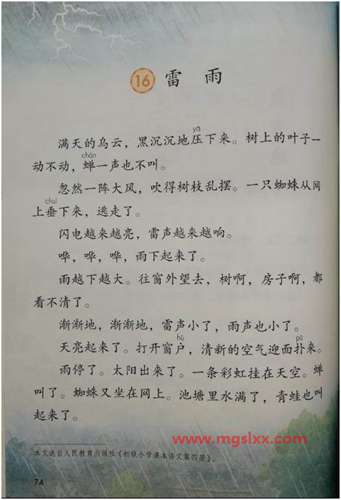 16 雷雨
yā
满天的乌云，黑沉沉地压下来。树上的叶子一
chán
动不动，蝉一声也不叫。
忽然一阵大风，吹得树枝乱摆。一只蜘蛛从网
chuí
上垂下来，逃走了。
闪电越来越亮，雷声越来越响。
哗，哗，哗，雨下起来了。
雨越下越大。往窗外望去，树啊，房子啊，都
看不清了。
渐渐地，渐渐地，雷声小了，雨声也小了。
hù pū
天亮起来了。打开窗户，清新的空气迎面扑来。
雨停了。太阳出来了。一条彩虹挂在天空。蝉
叫了。蜘蛛又坐在网上。池塘里水满了，青蛙也叫
起来了。
www.mgslxx.com
本文选自人民教育出版社《初级小学课本语文第四册》。
74